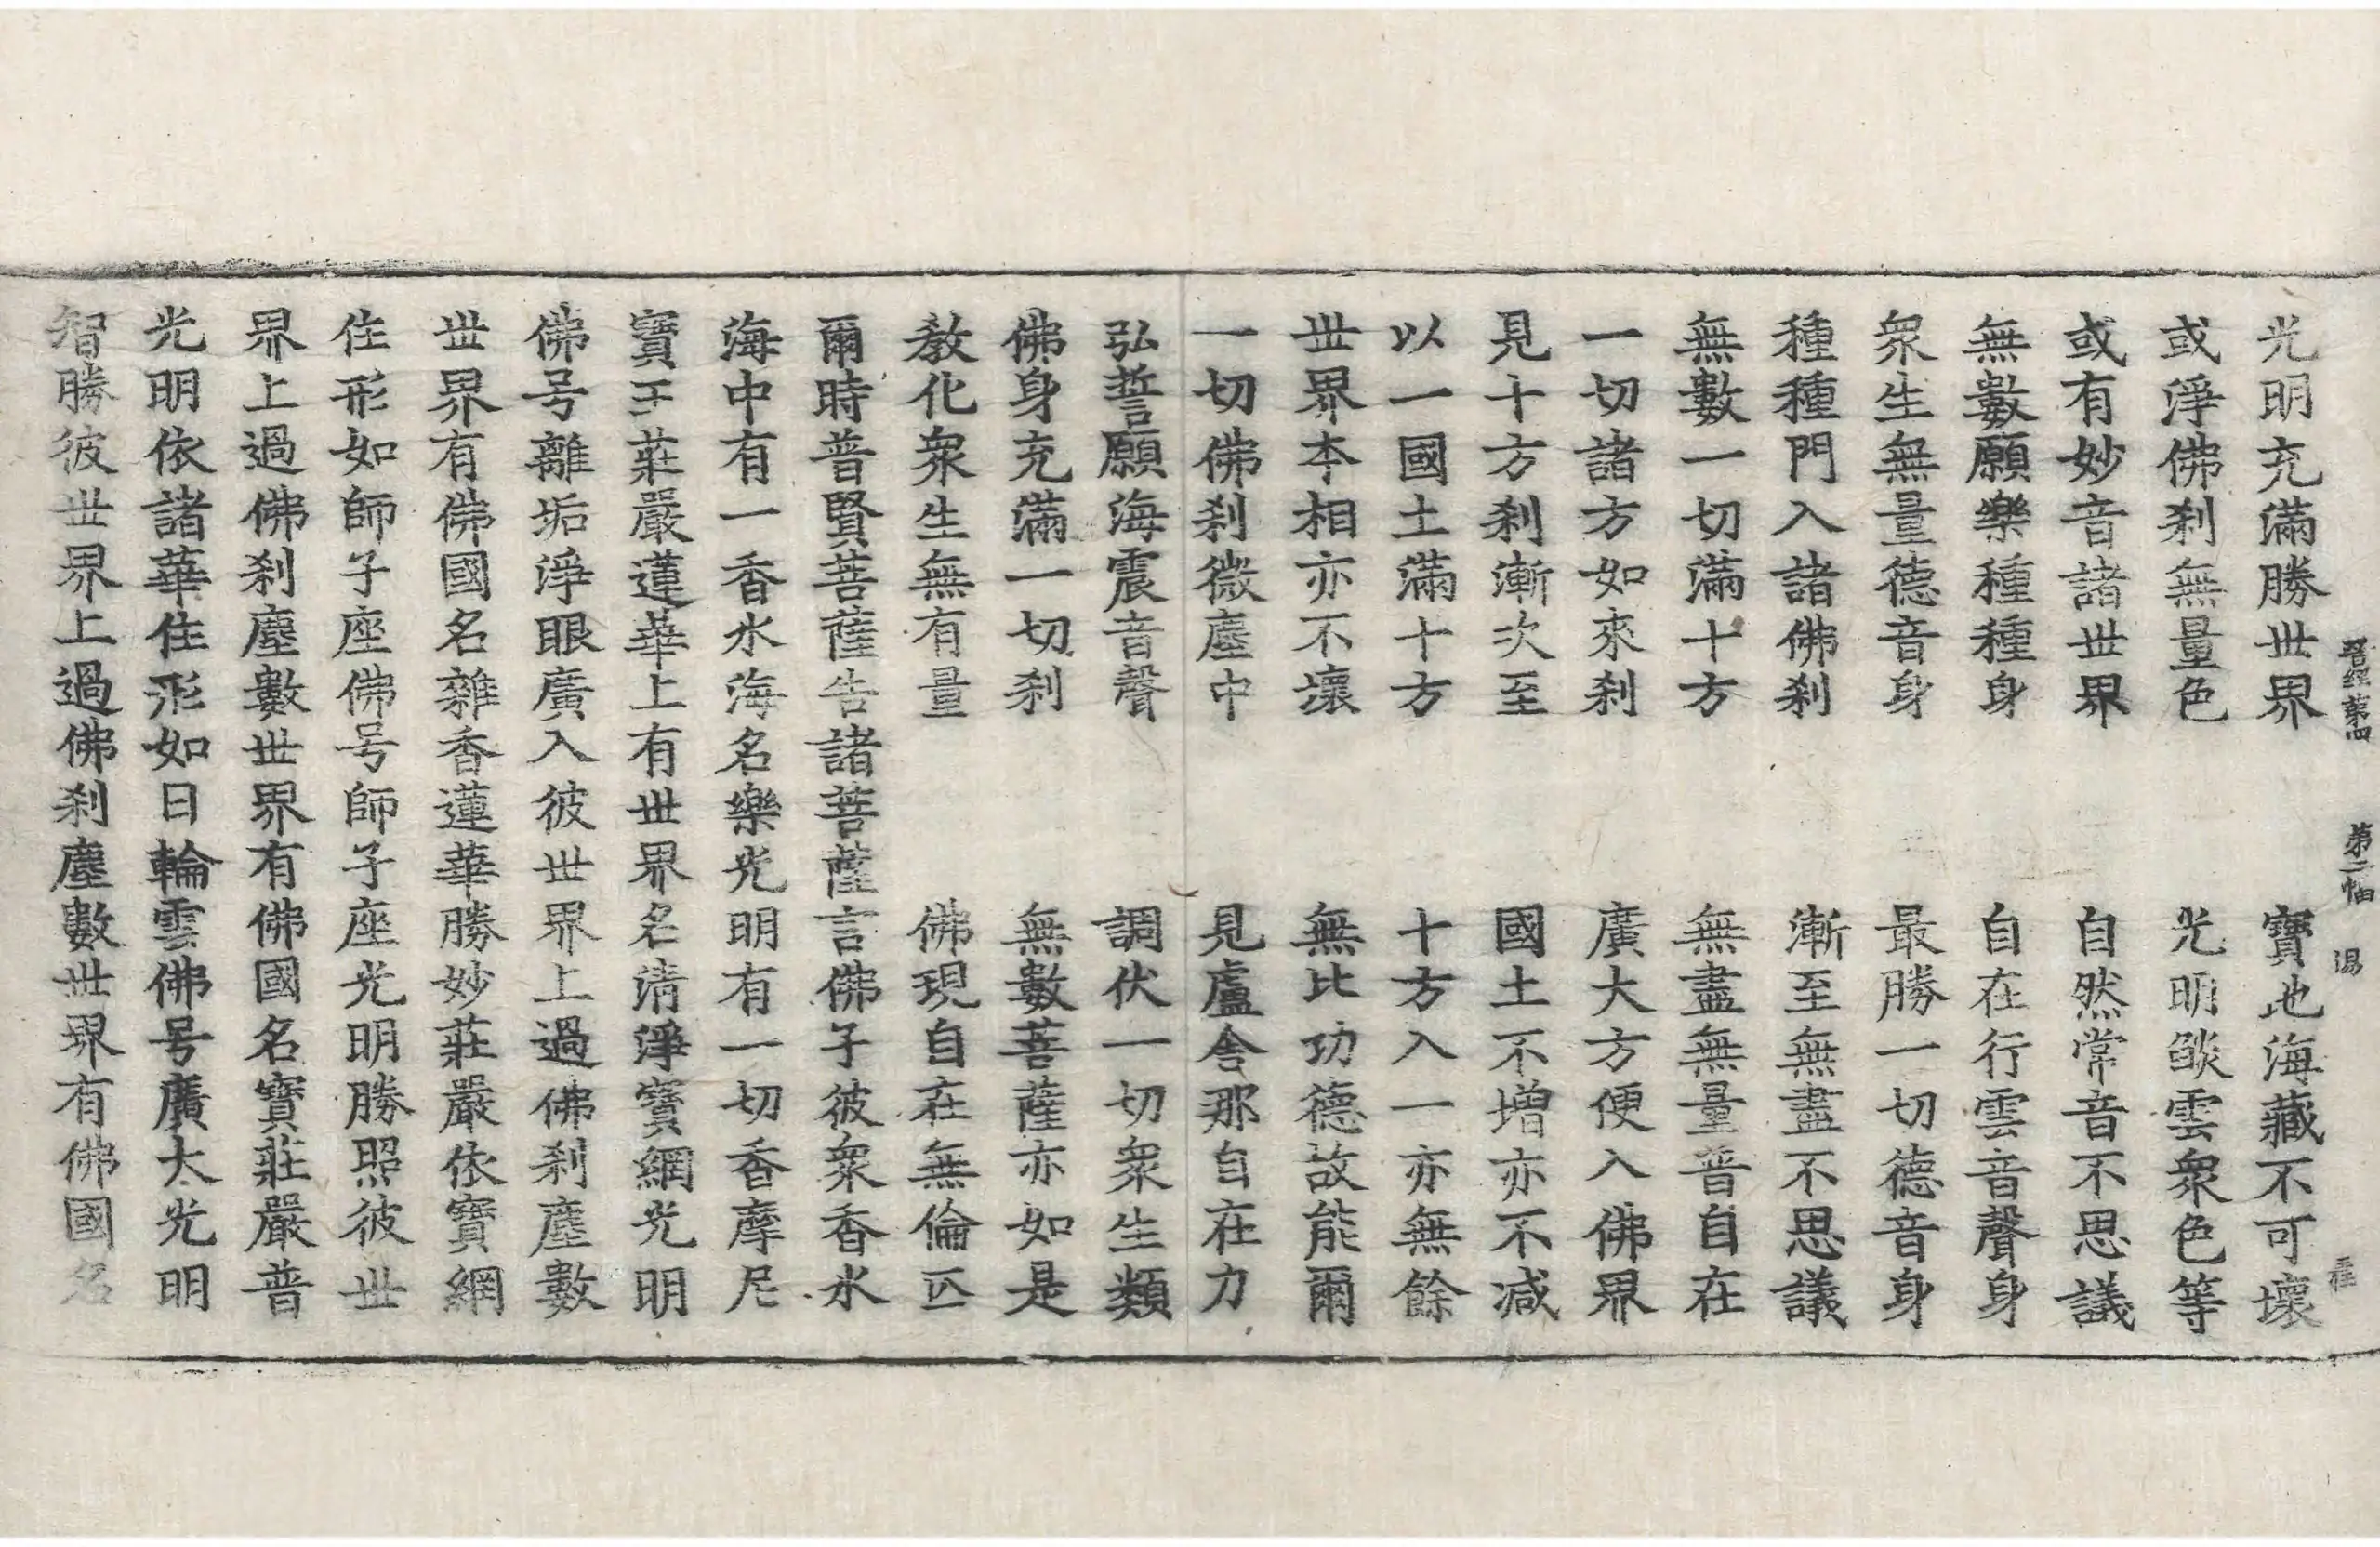 晉經第四 第二幅 湯 霍
光明充滿勝世界 寶地海藏不可壞
或淨佛刹無量色 光明䧟雲衆色等
或有妙音諸世界 自然常音不思議
無數願樂種種身 自在行雲音聲身
衆生無量德音身 最勝一切德音身
種種門入諸佛刹 漸至無盡不思議
無數一切滿十方 無盡無量普自在
一切諸方如來刹 廣大方便入佛界
見十方刹漸次至 國土不增亦不減
以一國土滿十方 十方入一亦無餘
世界本相亦不壞 無比功德故能爾
一切佛刹微塵中 見盧舍那自在力
弘誓願海震音聲 調伏一切衆生類
佛身充滿一切刹 無數菩薩亦如是
教化衆生無有量 佛現自在無倫匹
爾時普賢菩薩告諸菩薩言佛子彼衆香水
海中有一香水海名樂光明有一切香摩尼
寶王莊嚴蓮華上有世界名清淨寶網光明
佛号離垢淨眼廣入彼世界上過佛刹塵數
世界有佛國名雜香蓮華勝妙莊嚴依寶網
住形如師子座佛号師子座光明勝照彼世
界上過佛刹塵數世界有佛國名寶莊嚴普
光明依諸華住形如日輪雲佛号廣大光明
智勝彼世界上過佛刹塵數世界有佛國名